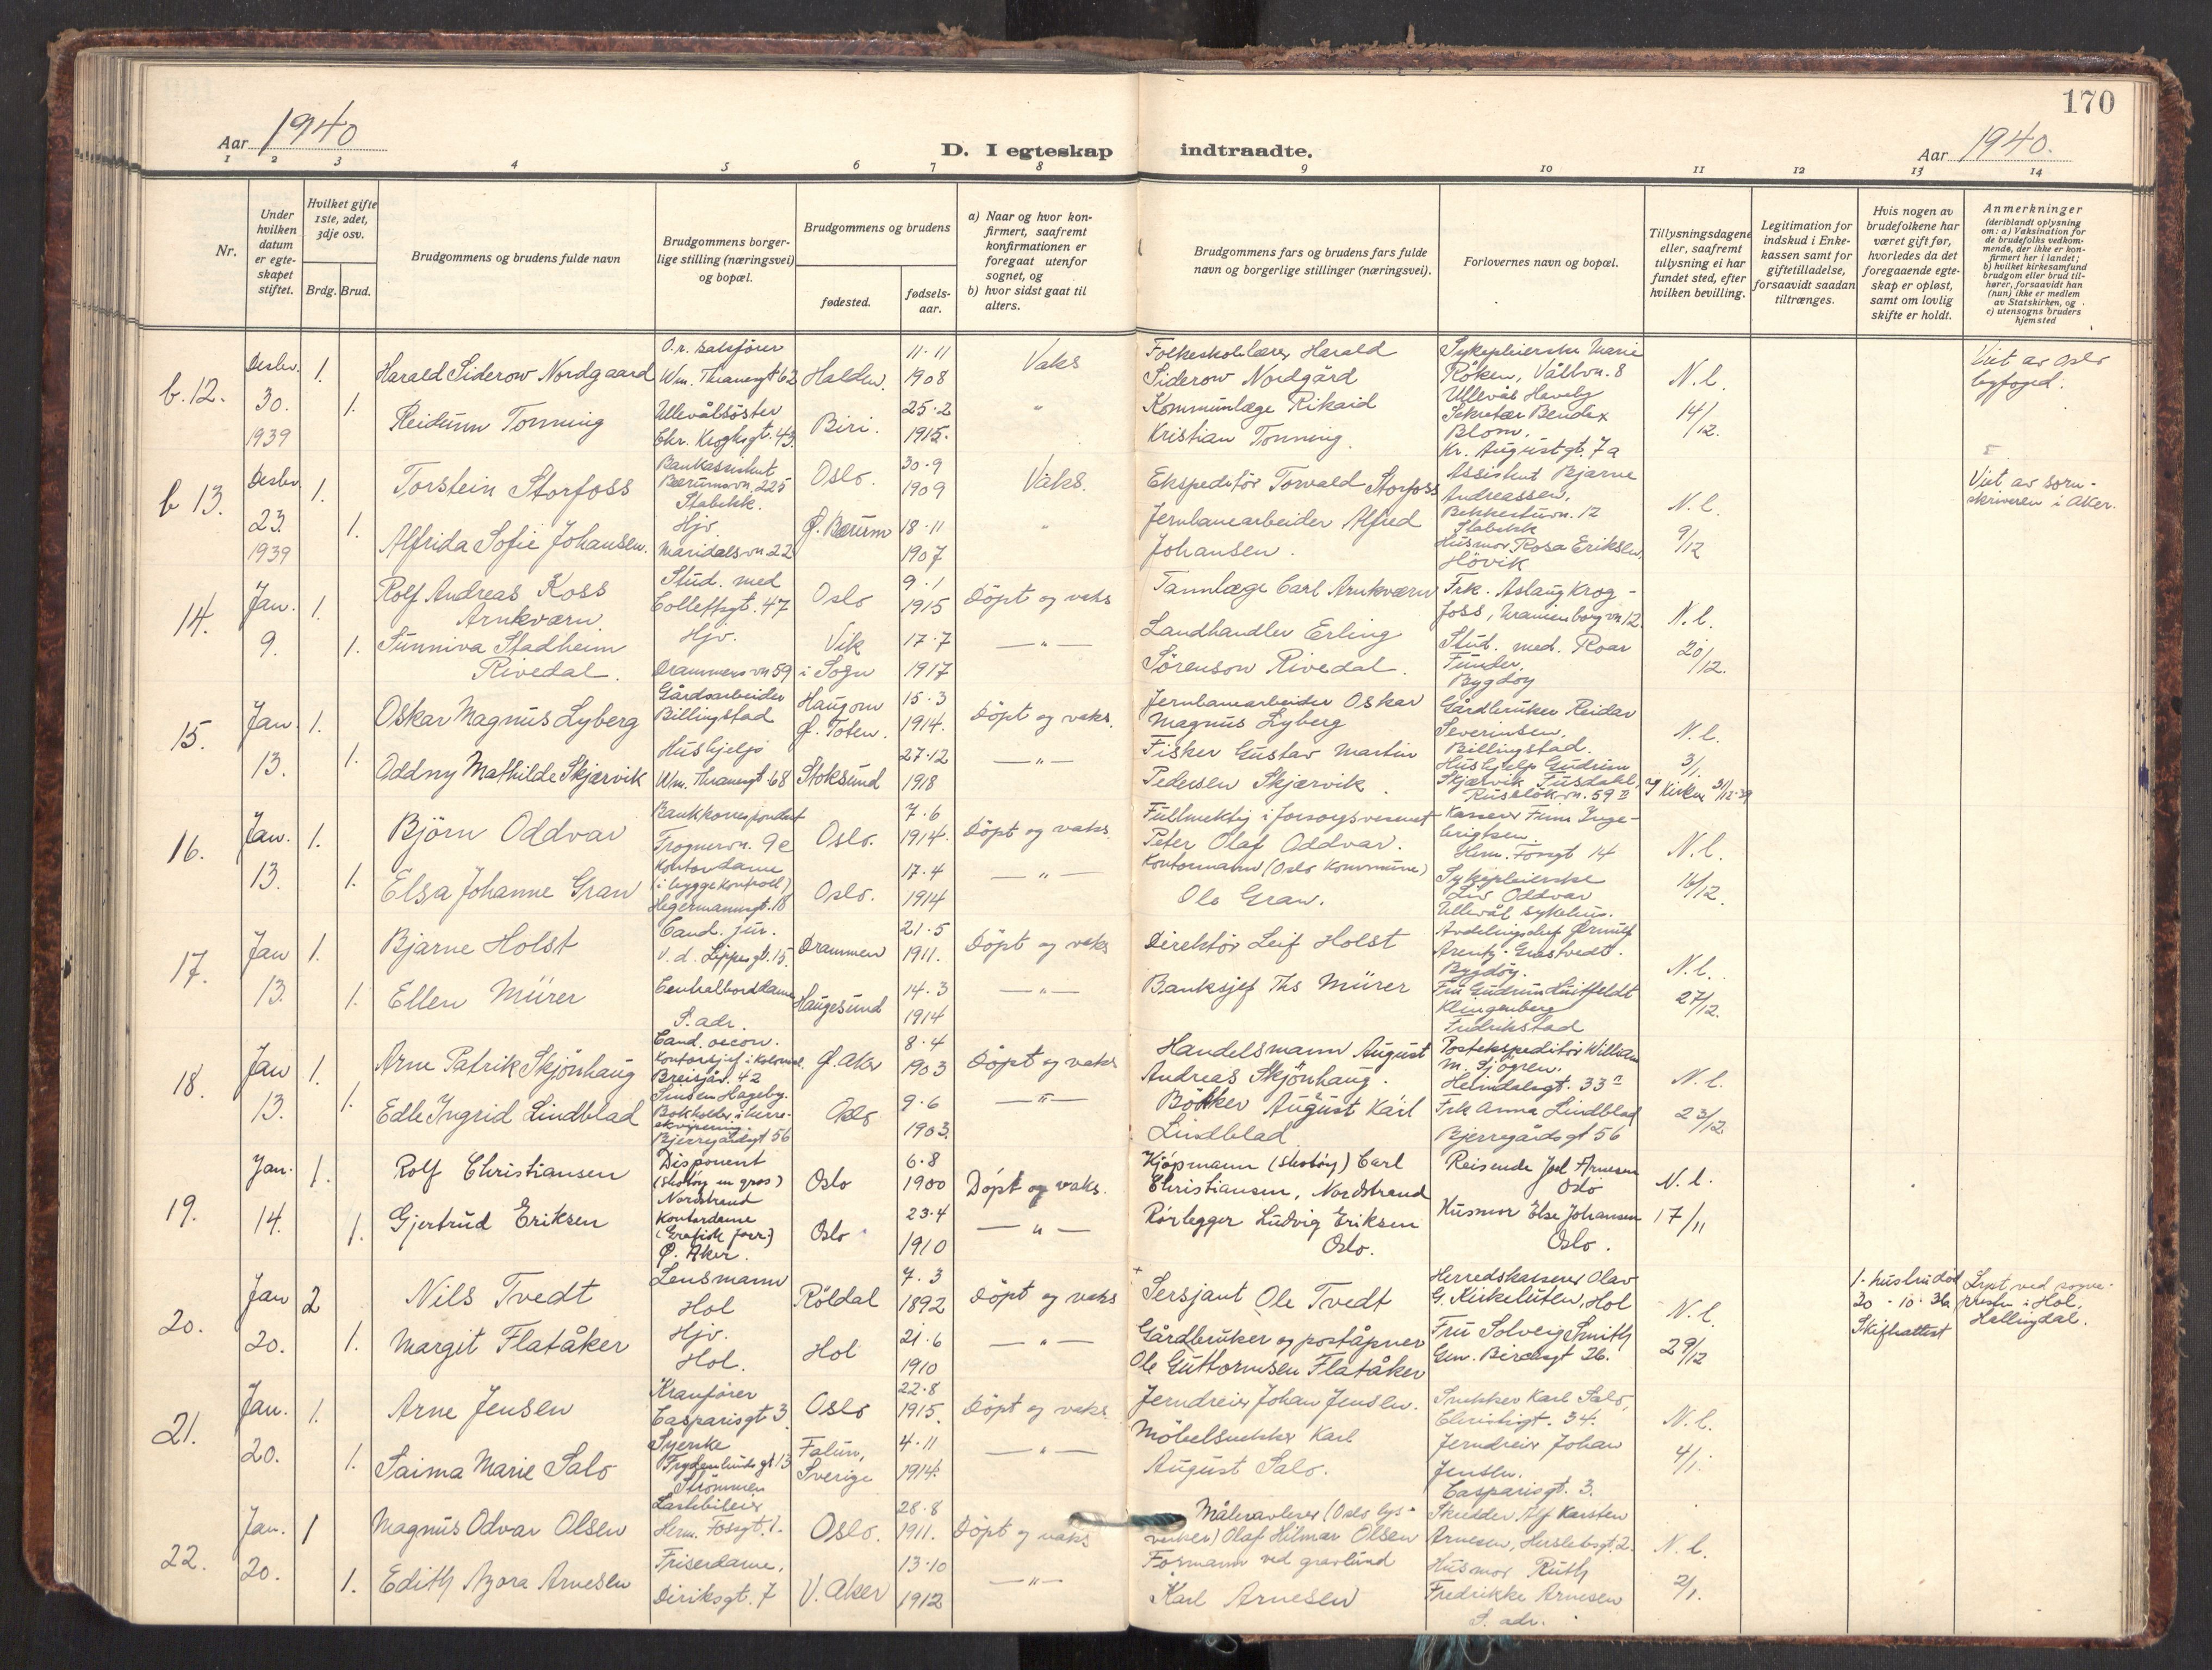 170
Aar 1940
D. I egteskap indtraadte.
Aar 1940.
1 2 3 4 5 6 7 8 9 10 11 12 13 14
Nr.
Under hvilken datum er egte-skapet stiftet.
Hvilket gifte 1ste, 2det, 3dje osv.
Brdg. Brud.
Brudgommens og brudens fulde navn
Brudgommens borger-lige stilling (næringsvei) og bopæl.
Brudgommens og brudens
fødested.
fødsels-aar.
a) Naar og hvor kon-firmert, saafremt konfirmationen er foregaat utenfor sognet, og
b) hvor sidst gaat til alters.
Brudgommens fars og brudens fars fulde navn og borgerlige stillinger (næringsvei).
Forlovernes navn og bopæl.
Tillysningsdagene eller, saafremt tillysning ei har fundet sted, efter hvilken bevilling.
Legitimation for indskud i Enke-kassen samt for giftetilladelse, forsaavidt saadan tiltrænges.
Hvis nogen av brudefolkene har været gift før, hvorledes da det foregaaende egte-skap er opløst, samt om lovlig skifte er holdt.
Anmerkninger
(deriblandt oplysning om: a) Vaksination for de brudefolks vedkom-mende, der ikke er kon-firmert her i landet;
b) hvilket kirkesamfund brudgom eller brud til-hører, forsaavidt han (hun) ikke er medlem av Statskirken, og
c) utensogns bruders hjemsted
b. 12. Desbr. 30. 1939 1. Harald Siderow Nordgaard O.r. saksfører Wm. Thranesgt 62 Halden. 11.11 1908 Vaks Folkeskolelærer Harald Siderow Nordgård Sykepleierske Marie Röken, Vållvn. 8 Ullevål Haveby N. l. 14/12. Viet av Oslo byfoged.
1. Reidunn Tonning Ullevålsöster Chr. Kroghsgt. 43. Biri. 25.2 1915. " Kommunlæge Rikaid Kristian Tonning. Sekretær Bendix Blom. Kr. Augustgt. 7a
b 13. Desbr. 23. 1939 1. Torstein Storfoss Bankassistent Bærumsvn. 225 Stabekk. Oslo. 30.9 1909 Vaks. Ekspeditör Torvald Storfoss Assistent Bjarne Andreassen, Bekkestuvn. 12 Stabekk N. l. 9/12 Viet av soren-skriveren i Aker.
1. Alfrida Sofie Johansen. Hjv. Maridalsvn 22 Ø. Bærum 18.11 1907 " Jernbanearbeider Alfred Johansen. Husmor Rosa Eriksen, Hövik
14. Jan. 9. 1. Rolf Andreas Koss Arnkværn. Stud. med Collettsgt. 47 Oslo 9.1 1915 Döpt og vaks Tannlæge Carl Arnkværn Frk. Aslaug Krog-foss, Uranienborgvn 12. N. l. 20/12.
1. Sunniva Stadheim Rivedal. Hjv. Drammensvn 59 Vik i Sogn 17.7 1917 — " — Landhandler Erling Sörenson Rivedal. Stud. med. Roar Funder. Bygdöy
15. Jan. 13. 1. Oskar Magnus Lyberg Gårdsarbeider Billingstad Haugom Ø. Toten. 15.3 1914. Döpt og vaks. Jernbanearbeider Oskar Magnus Lyberg Gårdbruker Reidar Severinsen, Billingstad. N. l. 3/1.
1. Oddny Mathilde Skjærvik Hushjelp Wm. Thranesgt 68 Stoksund 27.12 1918 — " — Fisker Gustav Martin Pedersen Skjærvik. Hushjelp Gudrun Skjærvik Tusdahl, Ruselökvn. 59 II I Kirken 31/12-39
16. Jan. 13. 1. Björn Oddvar Bankkorrespondent Frognervn. 9c Oslo. 7.6 1914. Döpt og vaks. Fullmektig i forsorgsvesenet Peter Olaf Oddvar. Kasserer Finn Inge-brigtsen Herm. Fossgt 14 N. l. 16/12.
1. Elsa Johanne Gran Kontordame (i byggekontroll) Hegermannsgt. 18 Oslo. 17.4 1914 — " — Kontormann (Oslo Kommune) Ole Gran. Sykepleierske Liv Oddvar Ullevål sykehus.
17. Jan 13. 1. Bjarne Holst Cand. jur. v. d. Lippesgt. 15. Drammen 21.5 1911. Döpt og vaks Direktör Leif Holst Avdelingschef Arentz-Grastvedt. Bygdöy. N. l. 27/12.
1. Ellen Mürer Centralborddame S. adr. Haugesund 14.3 1914 — " — Banksjef Ths Mürer Fru Gudrun Huitfeldt Klingenberg Fredrikstad
18. Jan 13. 1. Arne Patrik Skjönhaug Cand. oecon. Kontorsjef i Kolonial. Breisjåv. 42 Sinsen Hageby. Ø. Aker 8.4 1903 Döpt og vaks Handelsmann August Andreas Skjönhaug. Postekspeditör William M. Sjögren. Heimdalsgt. 33 N. l. 23/12
1. Edle Ingrid Lindblad Bokholder i herre-ekvipering. Bjerregårdsgt 56 Oslo 9.6 1903. — " — Bökker August Karl Lindblad Frk Anna Lindblad Bjerregårdsgt 56
19. Jan. 14. 1. Rolf Christiansen Disponent (Skotöy en gros) Nordstrand Oslo 6.8 1900 Döpt og vaks. Kjöpmann (skotöy) Carl Christiansen, Nordstrand Reisende Joel Arnesen Oslo N. l. 17/11
1. Gjertrud Eriksen Kontordame (Grafisk forr.) Ø. Aker. Oslo 23.4 1910 — " — Rörlegger Ludvig Eriksen Oslo. Husmor Else Johansen Oslo.
20. Jan 20. 2 Nils Tvedt Lensmann Hol Röldal 7.3 1892 Döpt og vaks Sersjant Ole Tvedt Herredskasserer Olav G. Kirkeluten, Hol N. l. 29/12 1. hustru död 20-10-36. Skifteattest Lyst ved sogne-presten i Hol, Hallingdal.
1. Margit Flatåker Hjv. Hol. Hol 21.6 1910 — " — Gårdbruker og poståpner Ole Guttormsen Flatåker Fru Solveig Smith Gen. Birchsgt 26.
21. Jan. 20. 1. Arne Jensen Kranförer Casparisgt 3. Oslo 22.8 1915. Döpt og vaks. Jerndreier Johan Jensen. Snekker Karl Salo, Christiesgt. 34. N. l. 4/1.
1. Saima Marie Salo Syerske Frydenlundsgt 13 Strömmen Falun, Sverige 4.11 1914. — " — Möbelsnekker Karl August Salo. Jerndreier Johan Jensen. Casparisgt. 3.
22. Jan. 20. 1 Magnus Odvar Olsen Lastebileier Herm. Fossgt. 1. Oslo. 28.8 1911. Döpt og vaks Måleravleser (Oslo lys-verker) Olaf Hilmar Olsen Skredder Alf Karsten Arnesen, Herslebsgt. 2. N. l. 2/1.
1. Edith Azora Arnesen Friserdame, Diriksgt. 7 V. Aker 13.10 1912 — " — Formann ved gravlund Karl Arnesen Husmor Ruth Fredrikke Arnesen S. adr.